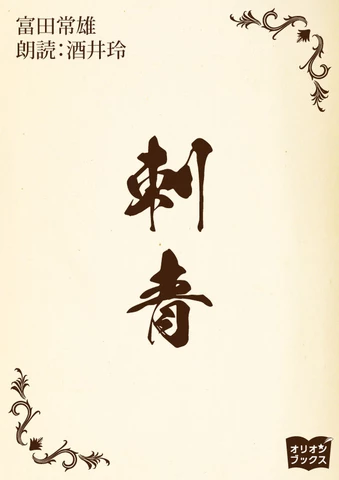 富田常雄
朗読：酒井玲
刺青
オリオン
ブックス